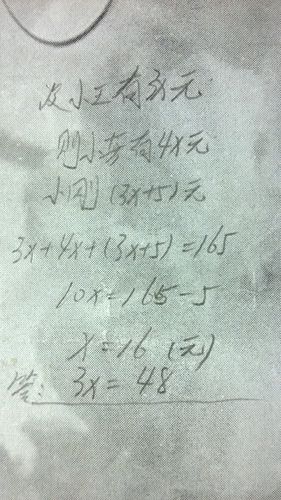 设小王有3x元
则小李有4x元
小刚(3x+5)元
3x+4x+(3x+5)=165
10x=165-5
x=16 (元)
答: 3x=48